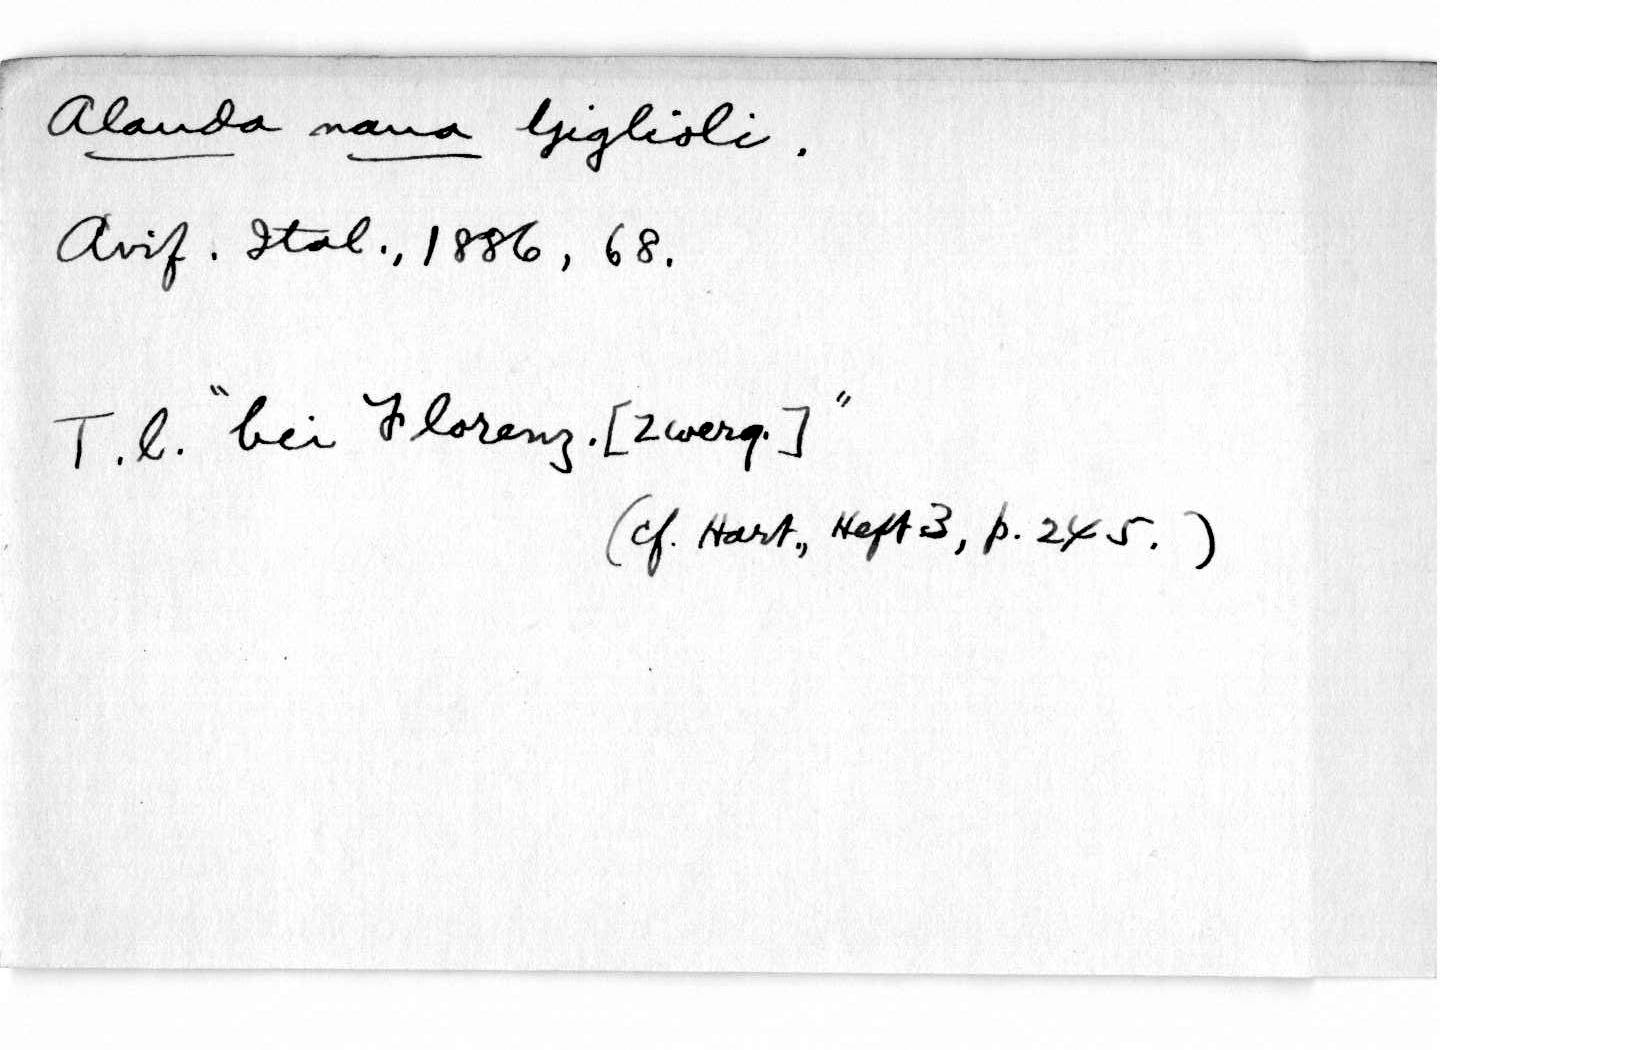 Alauda nana Giglioli.
Avif. Ital., 1886, 68.
T.l. "bei Florenz. [Zwerg.]"
(cf. Hart., Heft 3, p. 245.)